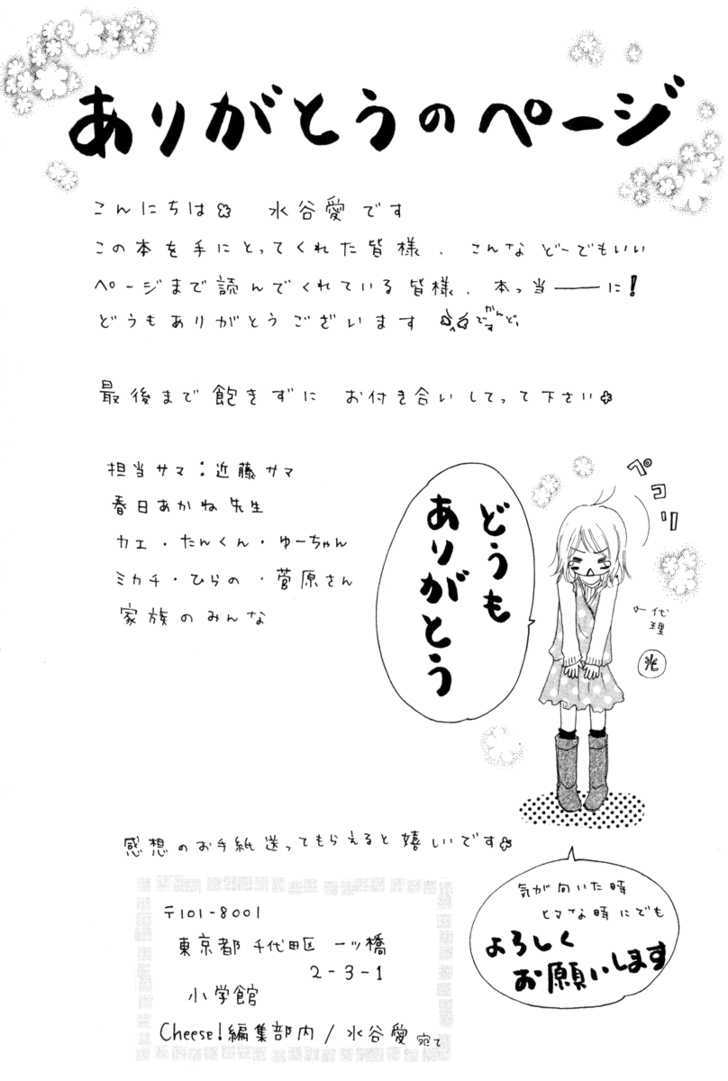 ありがとうのページ
こんにちは 水谷愛です
この本を手にとってくれた皆様、こんなどーでもいい
ページまで読んでくれている皆様、本っ当――に!
どうもありがとうございます
最後まで飽きずに お付き合いしてって下さい
担当サマ:近藤サマ
春日あかね先生
カエ・たんくん・ゆーちゃん
ミカチ・ひらの・菅原さん
家族のみんな
ペコリ
どうも
ありがとう
代理
感想のお手紙送ってもらえると嬉しいです
〒101-8001
東京都 千代田区 一ッ橋
2-3-1
小学館
Cheese!編集部内/水谷愛 宛て
気が向いた時
ヒマな時にでも
よろしく
お願いします